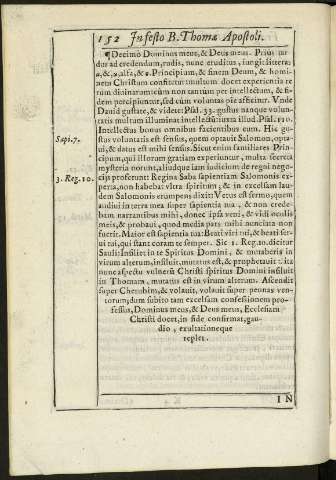 152 In festo B. Thomæ Apostoli.
¶Decimò Dominus meus, & Deus meus. Prius tar
dus ad credendum, rudis, nunc eruditus, iungit littera:
a, & ω, alfa, & ω. Principium, & finem Deum, & homi-
nem Christum constitutum multum docet experientia re
rum diuinarum: cum non tantum per intellectum, & fi-
dem percipiuntur, sed cum voluntas pie afficitur. Vnde
Dauid gustate, & videte: Psal. 33. gustus nanque volun-
tatis multum illuminat intellectum iuxta illud. Psal. 110.
Intellectus bonus omnibus facientibus eum. Hic gu-
stus voluntatis est sensus, quem optauit Salomon, opta-
ui, & datus est mihi sensus. Sicut enim familiares Prin-
cipum, qui illorum gratiam experiuntur, multa secreta
mysteria norunt, aliudque iam iudicium de regni nego-
cijs proferunt: Regina Saba sapientiam Salomonis ex-
perta, non habebat vltra spiritum; & in excelsam lau-
dem Salomonis erumpens dixit: Verus est sermo, quem
audiui in terra mea super sapientia tua, & non crede-
bam narrantibus mihi, donec ipsa veni, & vidi oculis
meis, & probaui, quod media pars mihi nunciata non
fuerit. Maior est sapientia tua: Beati viri tui, & beati ser-
ui tui, qui stant coram te semper. Sic 1. Reg. 10. dicitur
Sauli: Insiliet in te Spiritus Domini, & mutaberis in
virum alterum, insiluit, mutatus est, & prophetauit: ita
nunc aspectu vulnerũ Christi spiritus Domini insiluit
in Thomam, mutatus est in virum alterum. Ascendit
super Cherubim, & volauit, volauit super pennas ven-
torum, dum subito tam excelsam confessionem pro-
fessus, Dominus meus, & Deus meus, Ecclesiam
Christi docet, in fide confirmat, gau-
dio, exultationeque
replet.
Sapi. 7.
3. Reg. 10.
IN